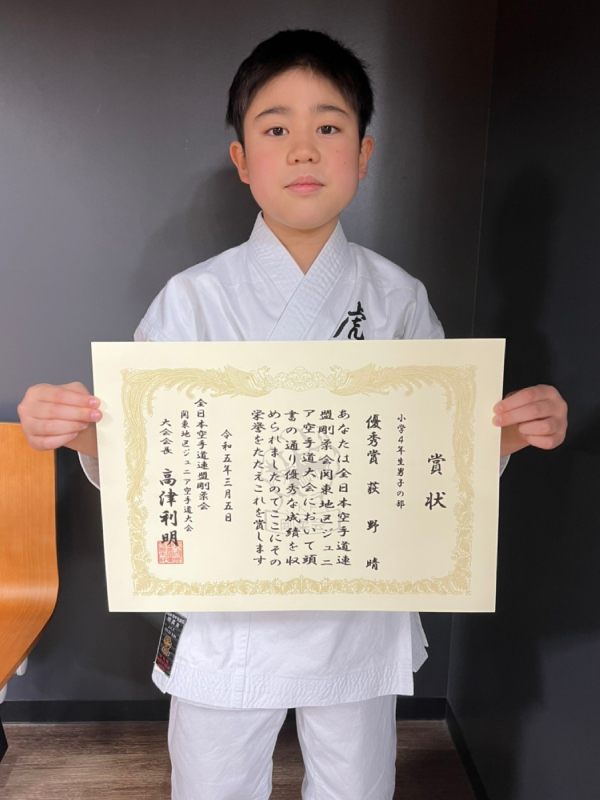 賞状
小学4年生男子の部
優秀賞 萩野晴
あなたは全日本空手道連
盟剛柔会関東地区ジュニ
ア空手道大会において頭
書の通り優秀な成績を収
められましたのでここにその
栄誉をたたえこれを賞します
令和五年三月五日
全日本空手道連盟剛柔会
関東地区ジュニア空手道大会
大会会長 高津利明
虎